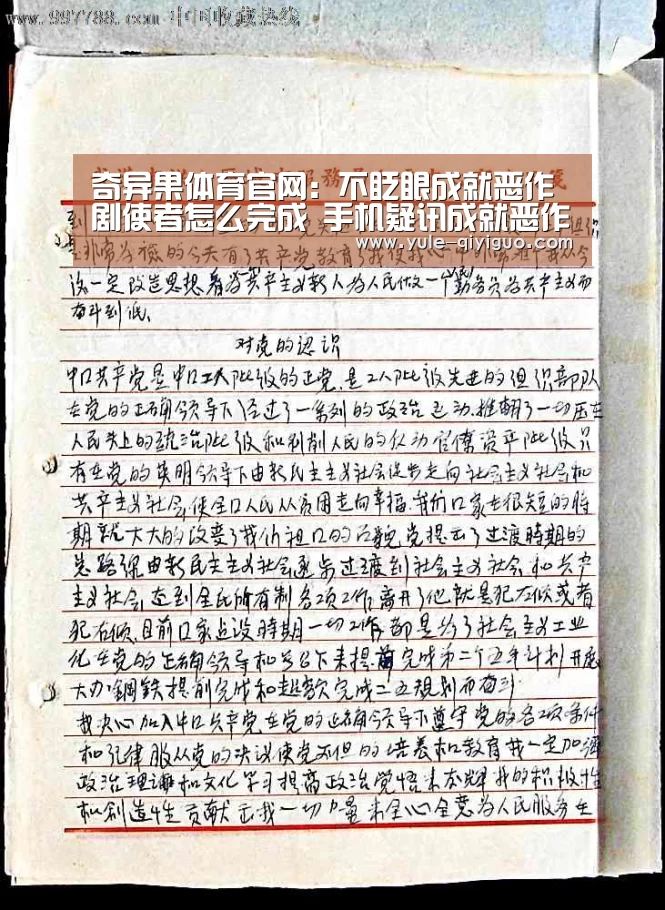 www.997788.com 中国收藏热线
奇异果体育官网：不眨眼成就恶作
剧使者怎么完成 手机疑讯成就恶作
www.yule-qiyiguo.com
是非常为 的今天有了共产党教育了我使我心中
该一定改造思想 着为共产主义新人为人民做一个勤务员为共产主义而
奋斗到底、
对党的认识
中口共产党是中口工人阶级的正党、是工人阶级先进的组识部队
在党的正确领导下经过了一系列的政治 动、推翻了一切压在
人民头上的统治阶级和剥削人民的 动官僚资产阶级只
有在党的英明领导下由新民主主义社会 步走向社会主义社会和
共产主义社会、使全口人民从贫困走向幸福、我们口家在很短的時
期就大大的改变了我们祖口的 貌、党提出了过渡時期的
总路線由新民主主义社会逐步过渡到社会主义社会、和共产
主义社会、达到全民所有制各项工作、离开了他就是犯左倾或者
犯右倾、目前口家 设時期一切工作都是为了社会主义工业
化在党的正确领导和 召下来提前完成第二个五年计划 开展
大办钢铁提前完成和超额完成二五规划而奋斗
我决心加入中口共产党在党的正确领导下遵守党的各项条件
和纪律服从党的决议使党不但的培养和教育我一定加强
政治理 和文化学习提高政治觉悟来发辉我的积极性
和創造性贡献出我一切力量来全心全意为人民服务